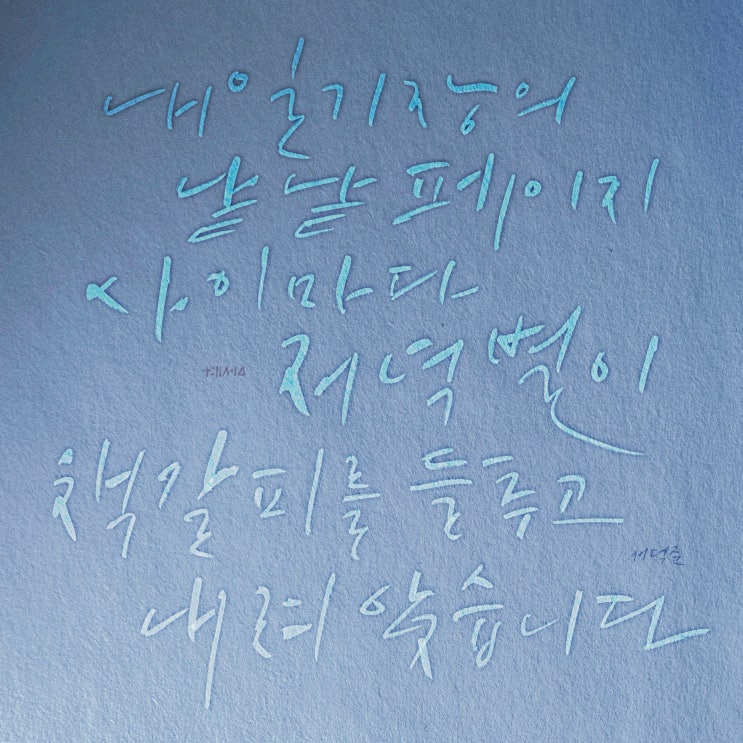 내 일기장의
낱낱 페이지
사이마다
저녁 별이
책갈피를 들추고
내려 앉습니다
서덕준